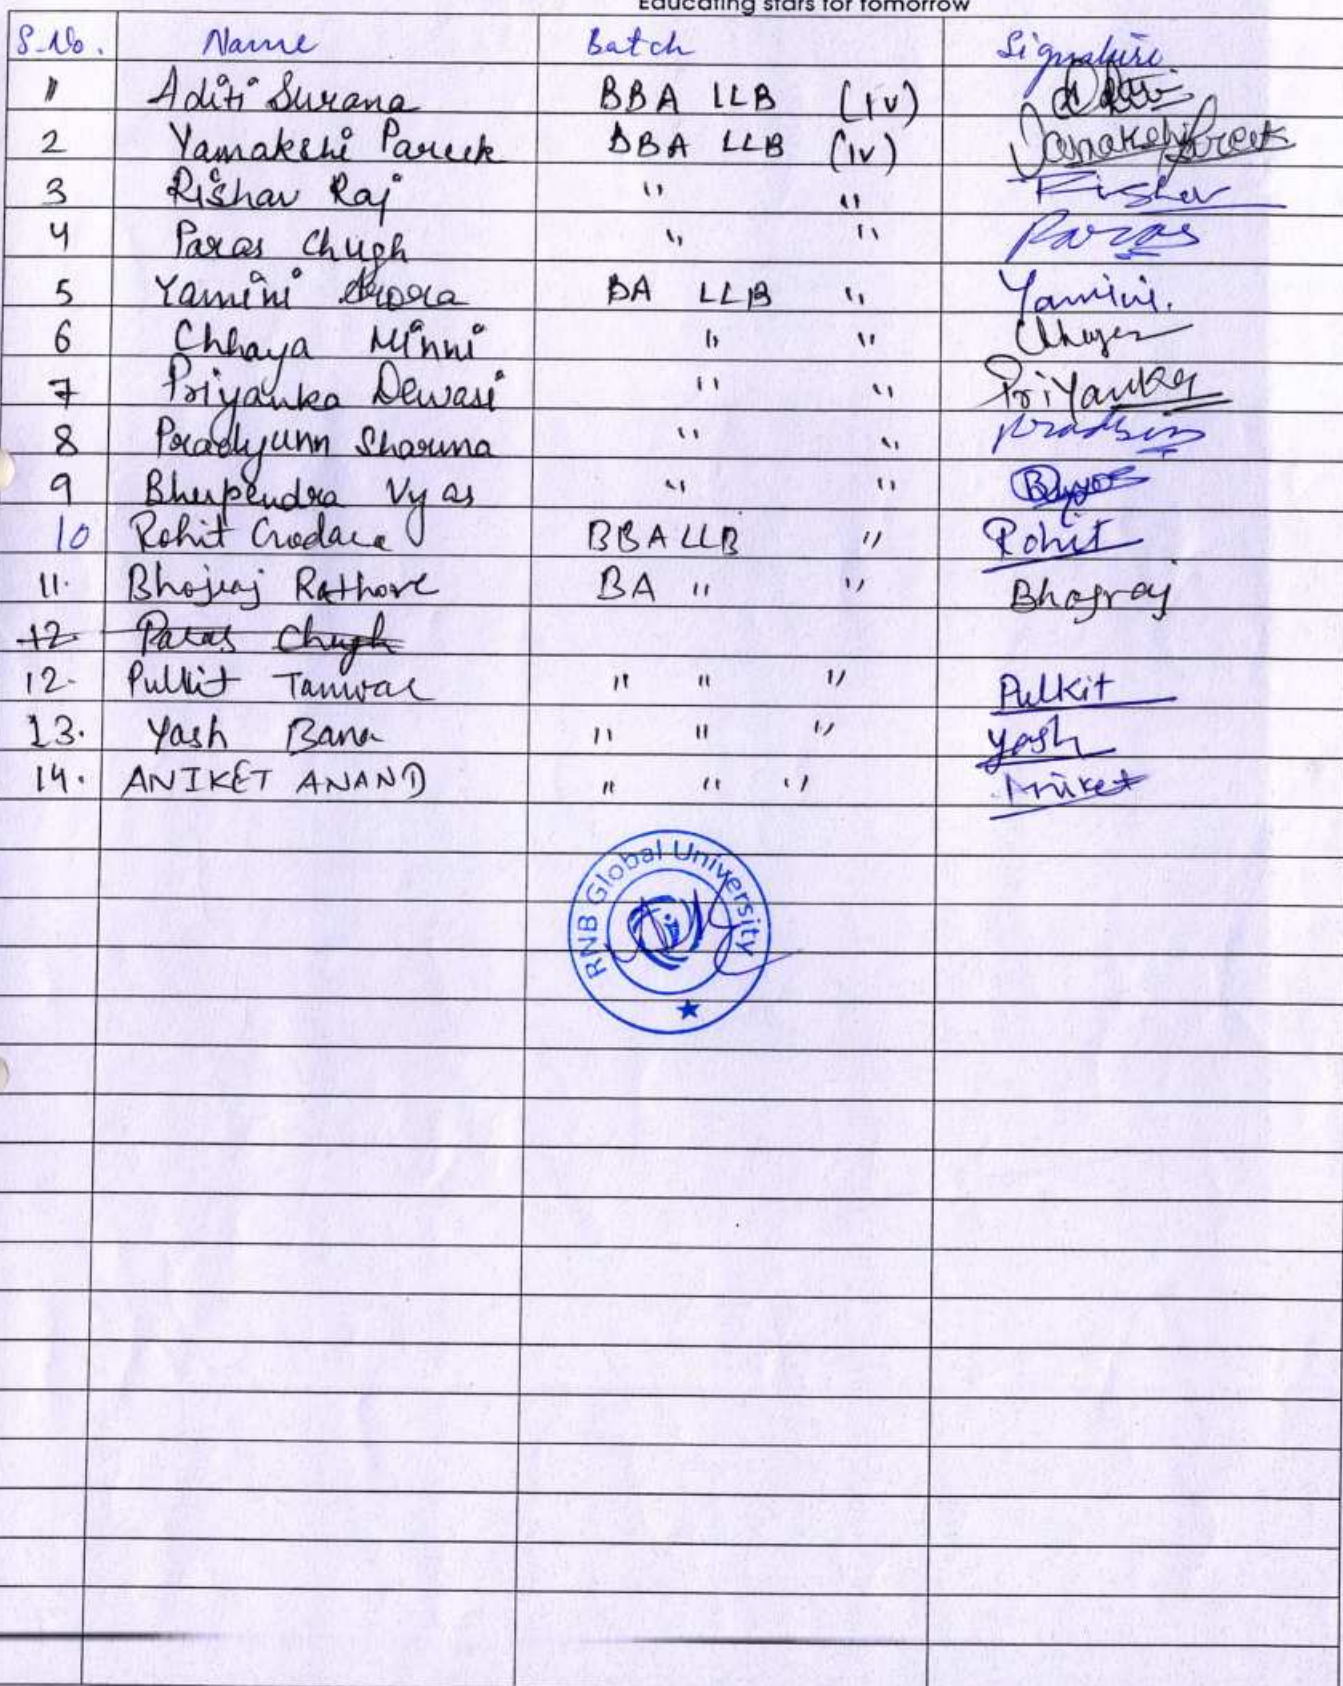 Educating stars for tomorrow
S.No. Name Batch Signature
1 Aditi Surana BBA LLB (iv) Aditi
2 Yamakshi Pareek BBA LLB (iv) Yamakshi Pareek
3 Rishav Raj " " Rishav
4 Paras Chugh " " Paras
5 Yamini Arora BA LLB " Yamini.
6 Chhaya Minni " " Chhaya
7 Priyanka Dewasi " " Priyanka
8 Pradyumn Sharma " "
9 Bhupendra Vyas " "
10 Rohit Godara BBA LLB " Rohit
11. Bhojraj Rathore BA " " Bhojraj
12 Paras Chugh
12. Pulkit Tanwar " " " Pulkit
13. Yash Bana " " " Yash
14. ANIKET ANAND " " " Aniket
RNB Global University